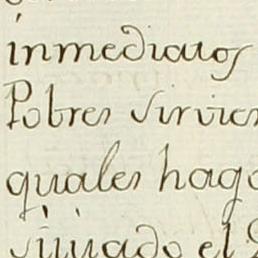 inmediatos
Pobres sirvien
quales hago
el